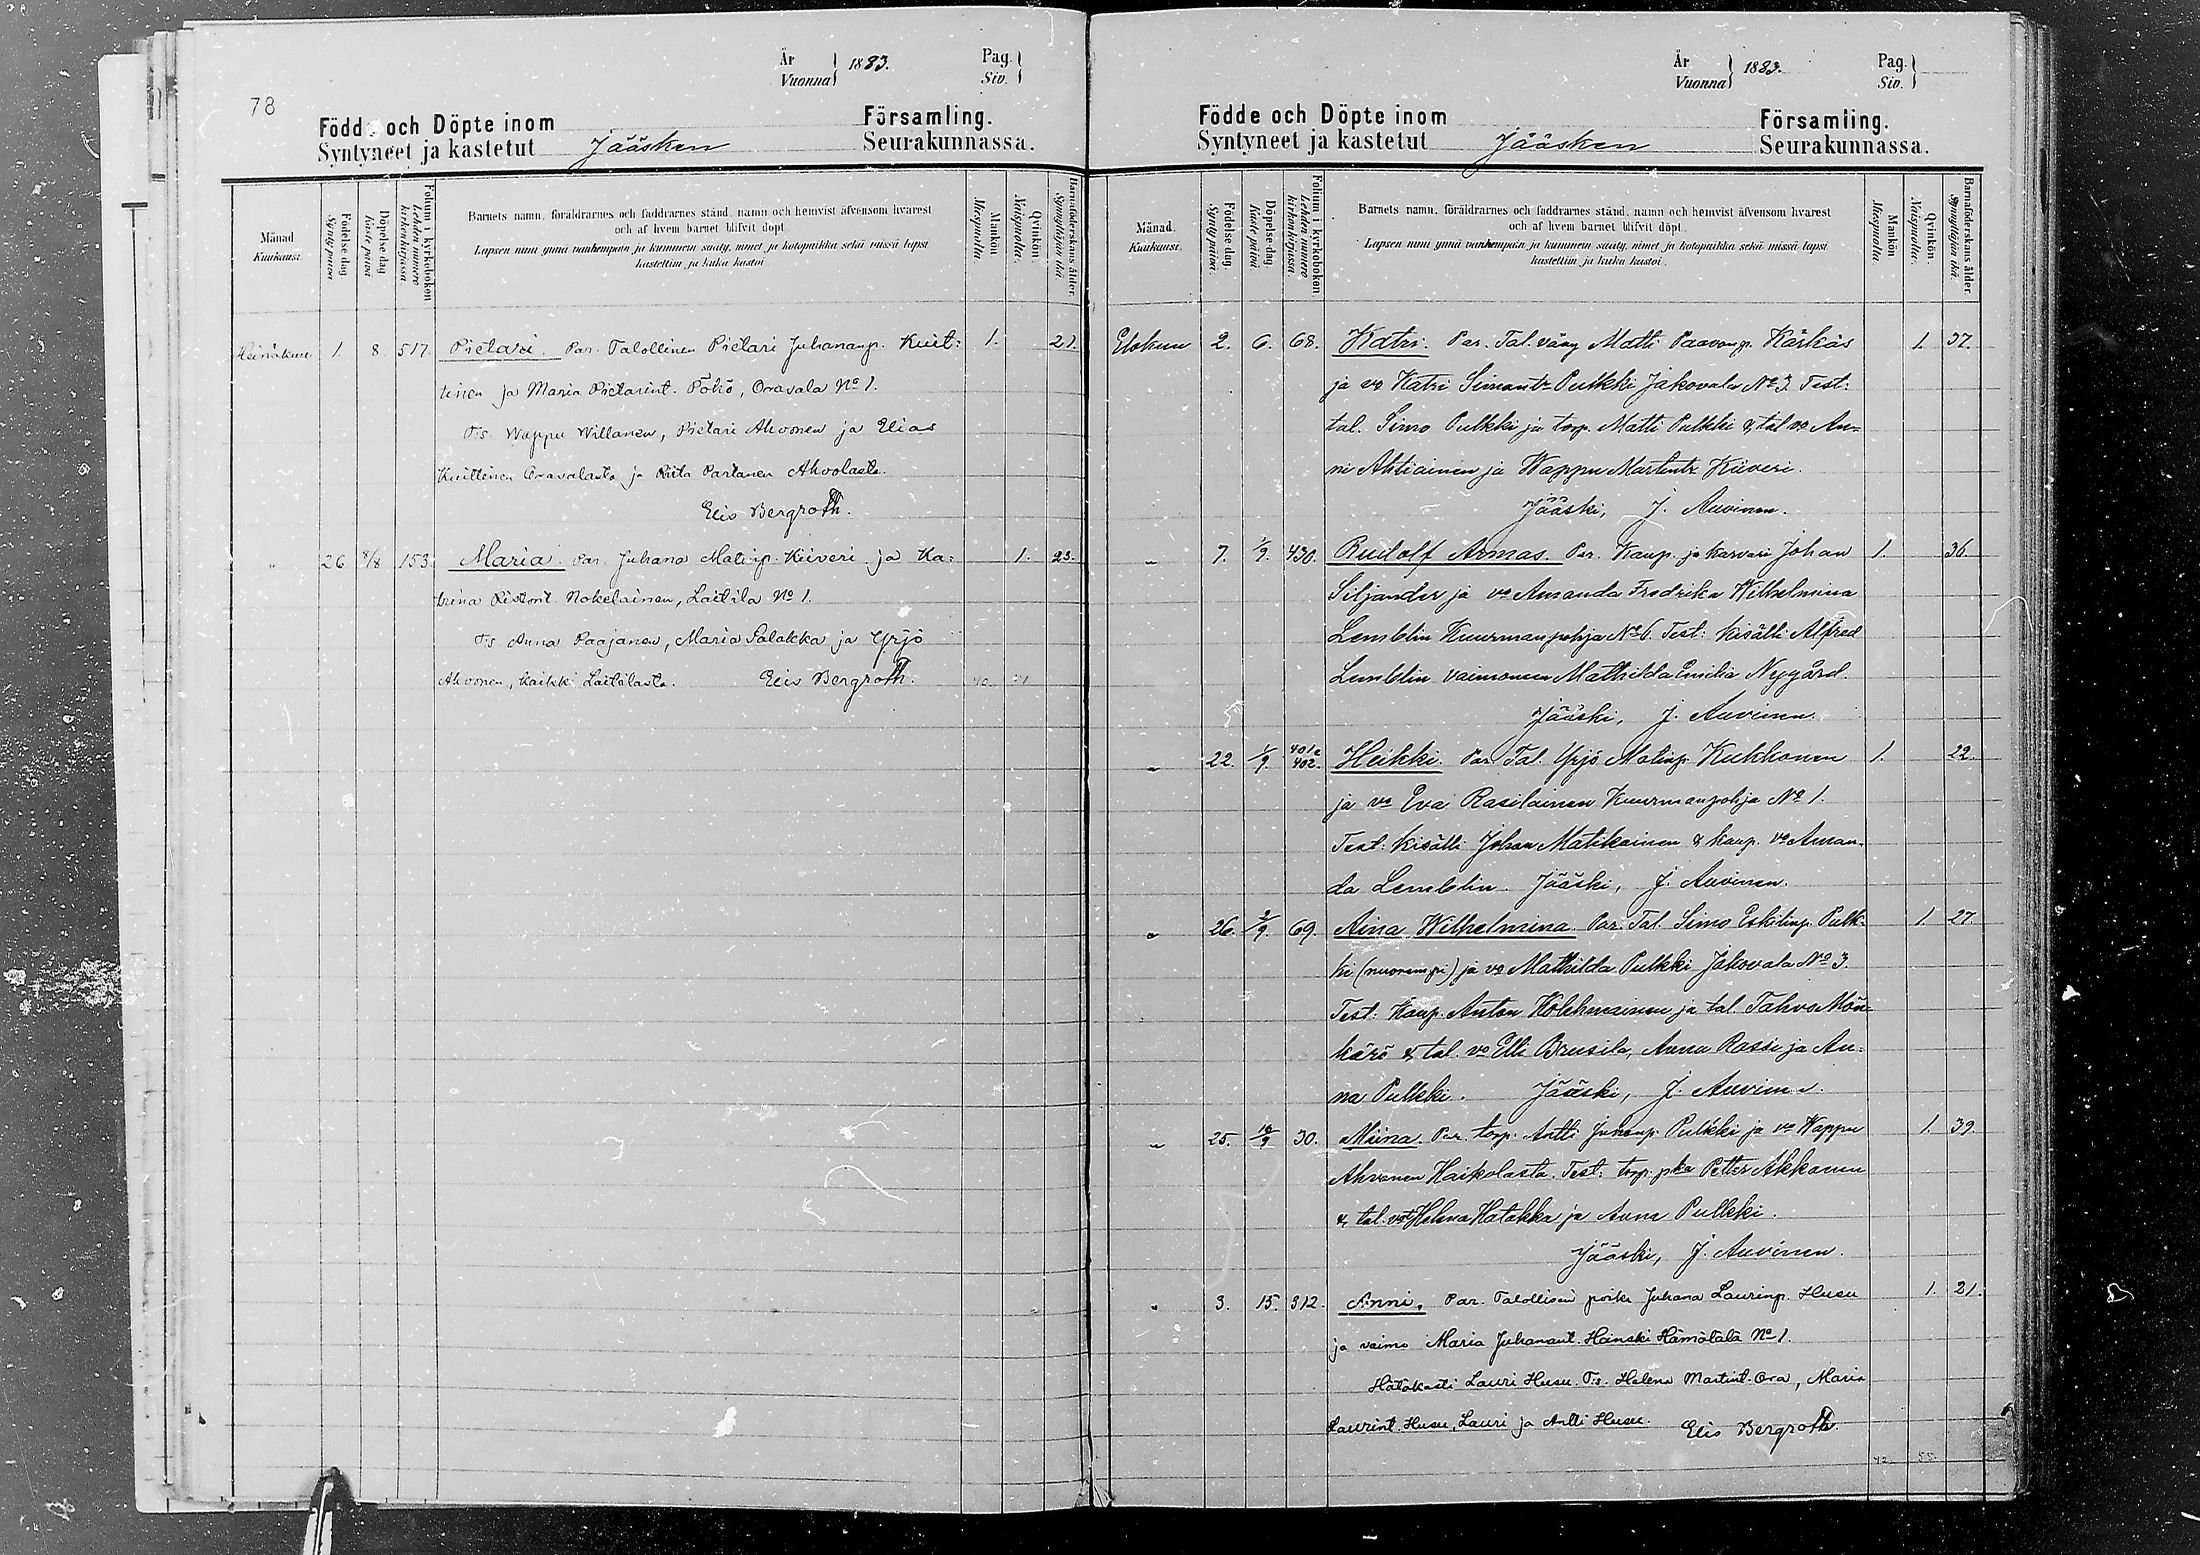 78
År
Vuonna } 1883.
Pag.
Siv. }
Födde och Döpte inom Församling.
Syntyneet ja kastetut Jääsken Seurakunnassa.
Månad
Kuukausi.
Födelse dag.
Synty päivä.
Döpelse dag.
Kaste päivä
Folium i kyrkoboken
Lehden numero kirkonkirjassa
Barnets namn, föräldrarnes och faddrarnes stånd, namn och hemvist äfvensom hvarest
och af hvem barnet blifvit döpt.
Lapsen nimi ynnä vanhempain ja kummein sääty, nimet ja kotopaikka sekä missä lapsi
kastettiin ja kuka kastoi.
Mankön
Miespuolta
Qvinkön.
Naispuolta.
Barnaföderskans ålder.
Synnyttäjän ikä.
Heinäkuu 1. 8. 517. Pietari. Par. Talollinen Pietari Juhananp. Kuit= 1. 21.
tinen ja Maria Pietarint. Pohjo, Oravala No 1.
T:s. Wappu Willanen, Pietari Ahvonen ja Elias
Kuittinen Oravalasta ja Riita Partanen Ahvolasta.
Elis Bergroth.
" 26 8/8 153. Maria. Par. Juhana Matinp. Kiiveri ja Ka= 1. 23.
trina Ristont. Nokelainen, Laitila No 1.
T:s Anna Paajanen, Maria Salakka ja Yrjö
Ahvonen, kaikki Laitilasta. Elis Bergroth.
År
Vuonna } 1883.
Pag.
Siv. }
Födde och Döpte inom Församling.
Syntyneet ja kastetut Jääsken Seurakunnassa.
Månad.
Kuukausi.
Födelse dag.
Synty päivä.
Döpelse dag.
Kaste päivä
Folium i kyrkoboken
Lehden numero kirkonkirjassa.
Barnets namn, föräldrarnes och faddrarnes stånd, namn och hemvist äfvensom hvarest
och af hvem barnet blifvit döpt.
Lapsen nimi ynnä vanhempain ja kummein sääty, nimet ja kotopaikka sekä missä lapsi
kastettiin ja kuka kastoi.
Mankön
Miespuolta.
Qvinkön.
Naispuolta.
Barnaföderskans ålder.
Synnyttäjän ikä.
Elokuu 2. 6. 68. Katri. Par. Tal. vävy Matti Paavonp. Kärkäs 1. 37.
ja vo Katri Simontr Pulkki Jakovala No 3. Test:
tal. Simo Pulkki ja torp. Matti Pulkki & tal vo An=
ni Ahtiainen ja Wappu Martintr Kiiveri.
Jääski, J. Auvinen.
" 7. 1/9. 430. Rudolf Armas. Par. Kaup. ja karvari Johan 1. 36.
Siljander ja vo Amanda Fredrika Wilhelmina
Lemblin Kuurmanpohja No 6. Test: kisälli Alfred
Lemblin vaimoneen Mathilda Emilia Nygård.
Jääski, J. Auvinen.
" 22. 1/9. 401 & 402. Heikki. Par. Tal. Yrjö Matinp. Kukkonen 1. 22.
ja vo Eva Rasilainen Kuurmanpohja No 1.
Test: kisälli Johan Matikainen & kaup. vo Aman=
da Lemblin. Jääski, J. Auvinen.
" 26. 2/9. 69. Aina Wilhelmina. Par. Tal. Simo Eskilinp. Pulk= 1. 27.
ki (nuorempi) ja vo Mathilda Pulkki Jakovala No 3.
Test: Kaup. Anton Kolehmainen ja tal. Tahvo Mön=
kärö & tal. vo Elli Brusila, Anna Rassi ja An=
na Pulkki. Jääski, J. Auvinen.
" 25. 10/9 30. Miina. Par. torp. Antti Juhanp. Pulkki ja vo Wappu 1. 39.
Ahvonen Kaikolasta. Test: torp. pka Petter Akkanen
& tal. vot Helena Hatakka ja Anna Pulkki.
Jääski, J. Auvinen.
" 3. 15. 312. Anni. Par. Talollisen poika Juhana Laurinp. Husu 1. 21.
ja vaimo Maria Juhanant. Hanski Hämätälä No 1.
Hätäkasti Lauri Husu. T:s. Helena Martint. Ora, Maria
Laurint. Husu, Lauri ja Antti Husu. Elis Bergroth.